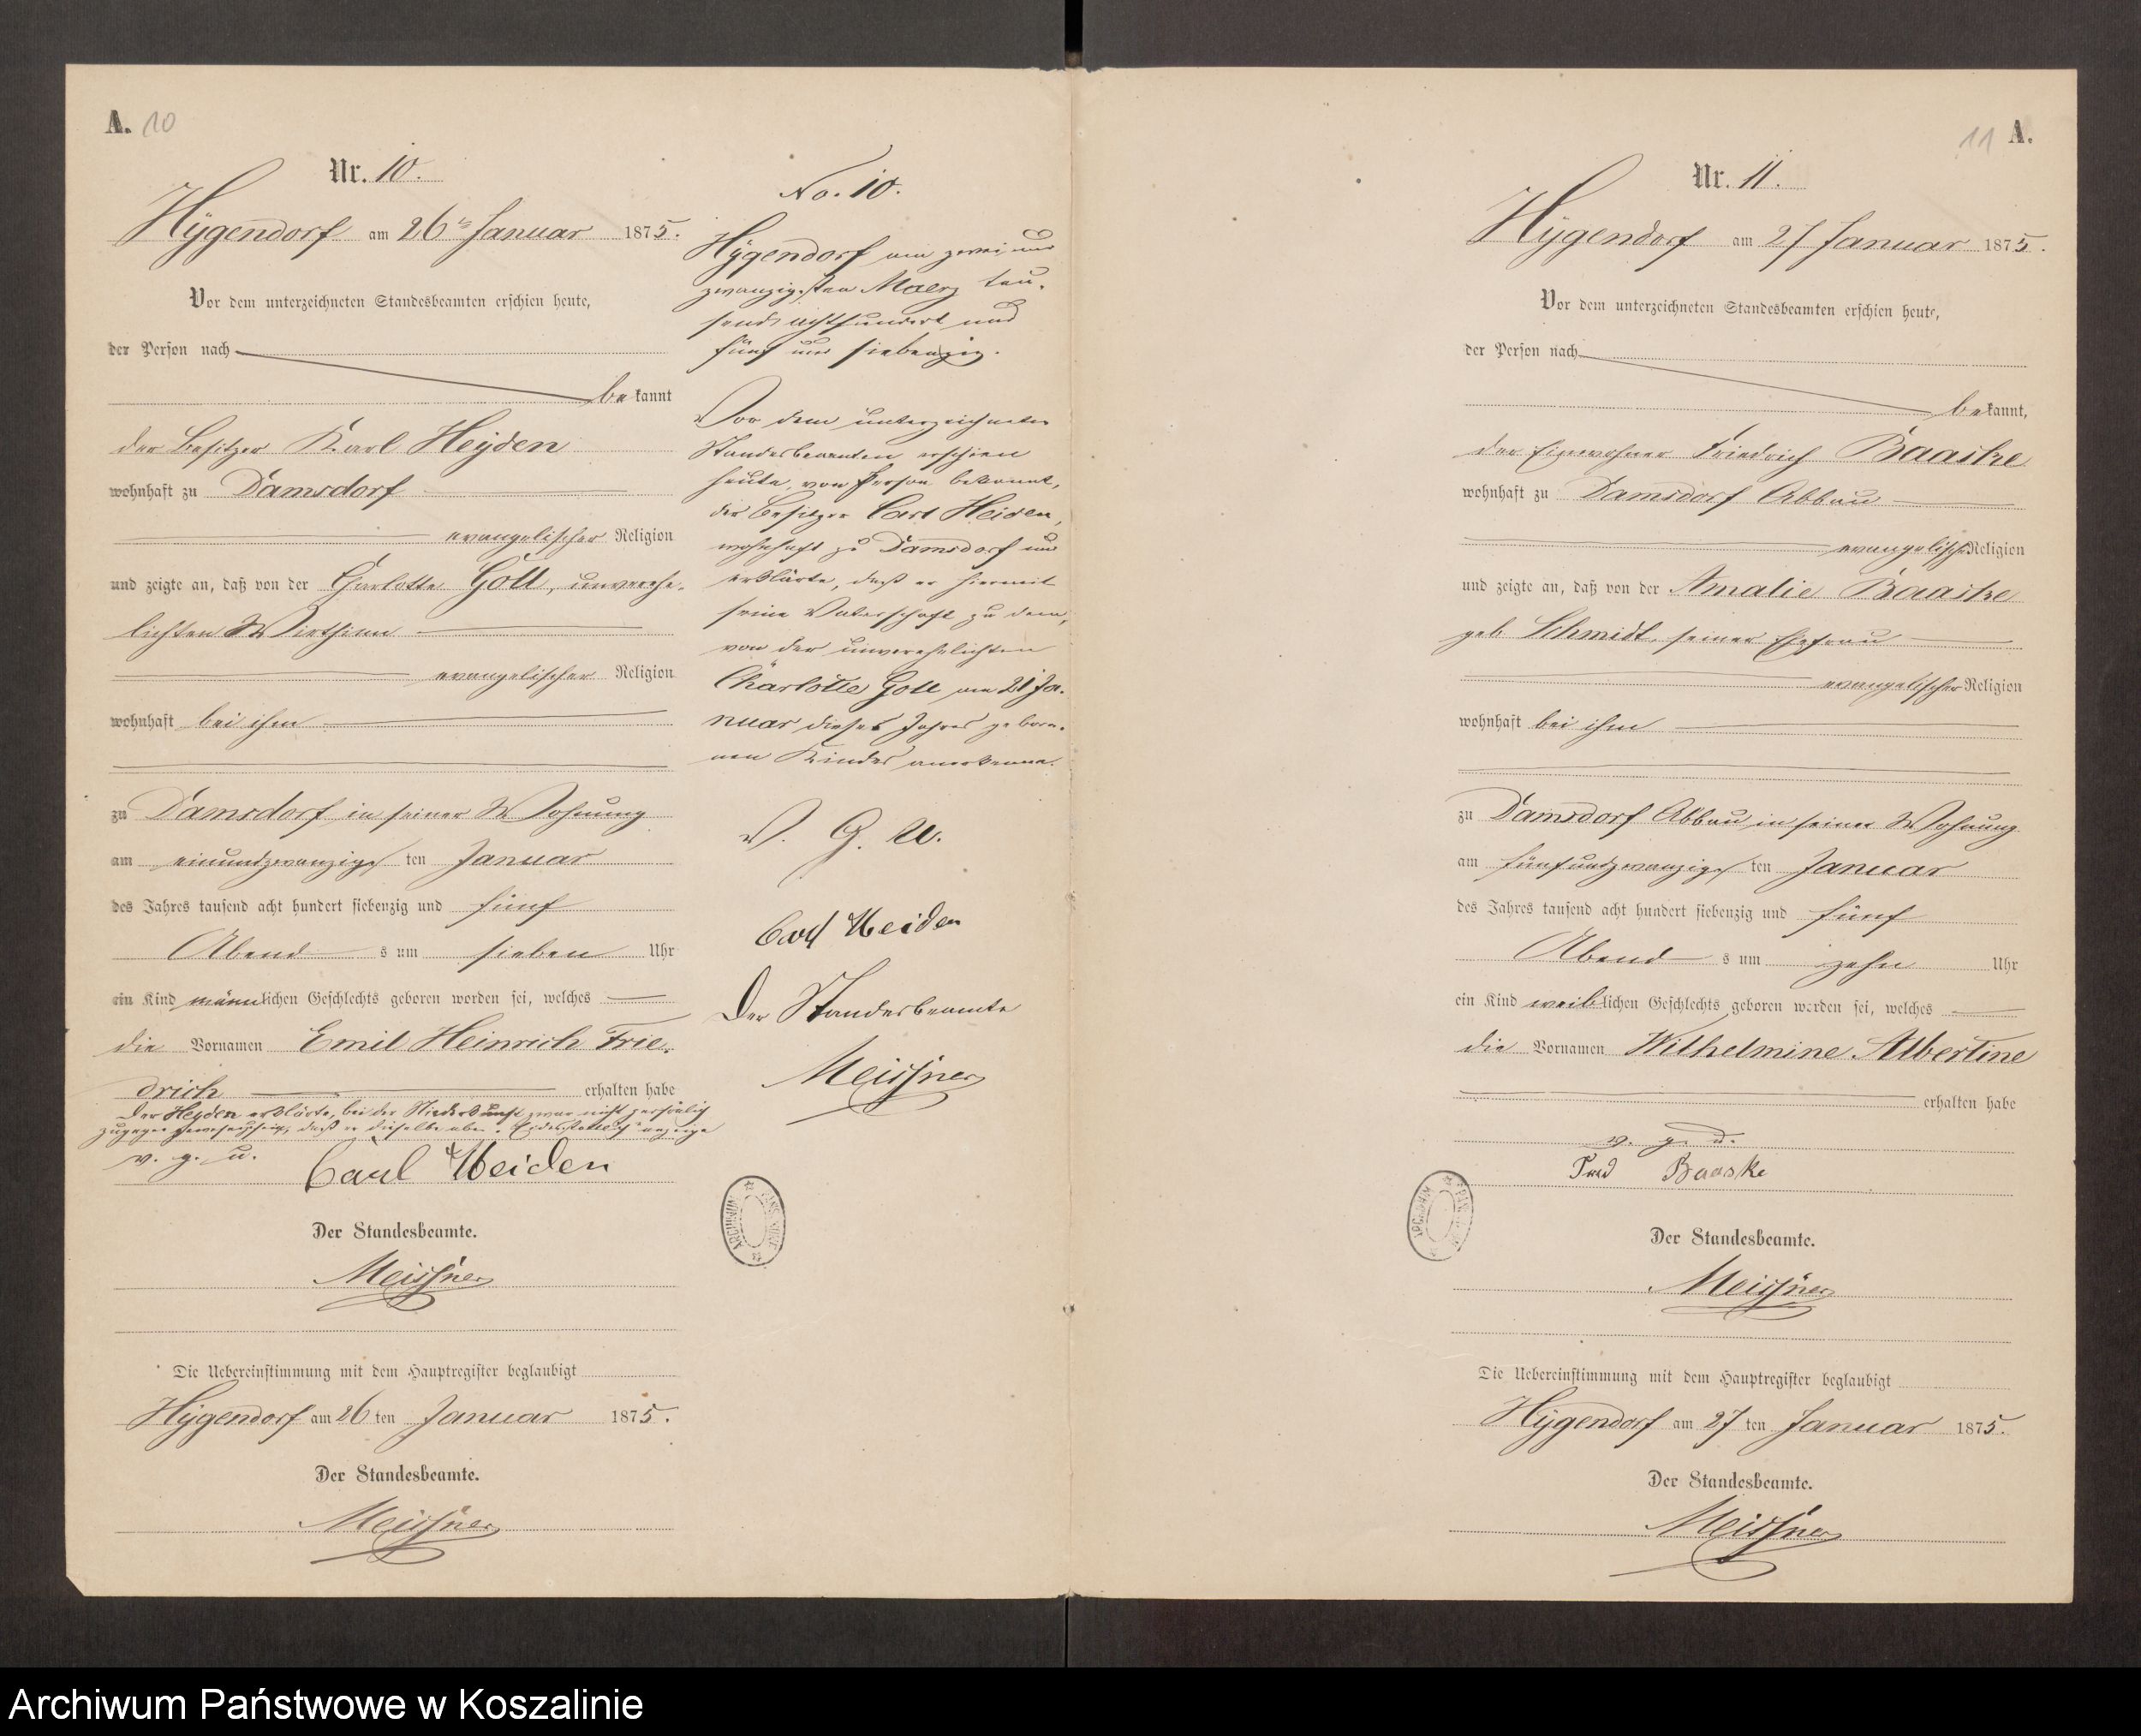 A. 10
Nr. 10.
Hygendorf am 26ten Januar 1875.
Vor dem unterzeichneten Standesbeamten erschien heute,
der Person nach
bekannt
der Besitzer Karl Heyden
wohnhaft zu Damsdorf
evangelischer Religion
und zeigte an, daß von der Charlotte Goll, unverehe-
lichten Wirthinn
evangelischer Religion
wohnhaft bei ihm
zu Damsdorf in seiner Wohnung
am einundzwanzigsten Januar
des Jahres tausend acht hundert siebenzig und fünf
Abends um sieben Uhr
ein Kind männlichen Geschlechts geboren worden sei, welches
die Vornamen Emil Heinrich Frie-
drich erhalten habe
Der Heyden erklärte, bei der Niederkunft zwar nicht persönlich
zugegen gewesen sei, daß er dieselbe aber anzeige
v. g. u.
Carl Heiden
Der Standesbeamte.
Meissner
Die Uebereinstimmung mit dem Hauptregister beglaubigt
Hygendorf am 26 ten Januar 1875.
Der Standesbeamte.
Meissner
No. 10.
Hygendorf am zwei und
zwanzigsten Maerz tau-
send achthundert und
fünf und siebenzig.
Vor dem unterzeichneten
Standesbeamten erschien
heute, von Person bekannt,
der Besitzer Carl Heiden,
wohnhaft zu Damsdorf und
erklärte, daß er hiermit
seine Vaterschaft zu dem,
von der unverehelichten
Charlotte Goll am 21 Ja-
nuar dieses Jahres gebore-
nen Kindes anerkenne.
V. G. U.
Carl Heiden
Der Standesbeamte
Meissner
ARCHIWUM
11 A.
Nr. 11.
Hygendorf am 27 Januar 1875.
Vor dem unterzeichneten Standesbeamten erschien heute,
der Person nach
bekannt,
der Einwohner Friedrich Baaske
wohnhaft zu Damsdorf Abbau
evangelischer Religion
und zeigte an, daß von der Amalie Baaske
geb Schmidt, seiner Ehefrau
evangelischer Religion
wohnhaft bei ihm
zu Damsdorf Abbau in seiner Wohnung
am fünfundzwanzigsten Januar
des Jahres tausend acht hundert siebenzig und fünf
Abends um zehn Uhr
ein Kind weiblichen Geschlechts geboren worden sei, welches
die Vornamen Wilhelmine Albertine
erhalten habe
v. g. u.
Fried Baaske
Der Standesbeamte.
Meissner
Die Uebereinstimmung mit dem Hauptregister beglaubigt
Hygendorf am 27 ten Januar 1875.
Der Standesbeamte.
Meissner
Archiwum Państwowe w Koszalinie